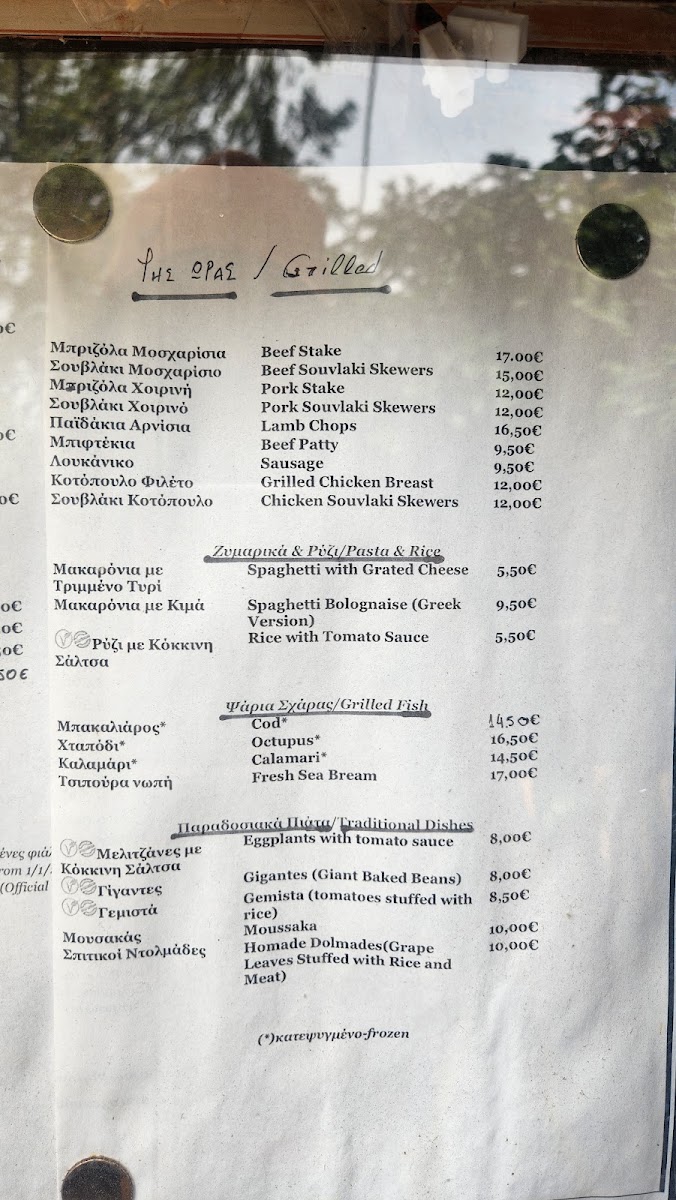 Της ΩΡΑΣ / Grilled
Μπριζόλα Μοσχαρίσια Beef Stake 17.00€
Σουβλάκι Μοσχαρίσιο Beef Souvlaki Skewers 15,00€
Μπριζόλα Χοιρινή Pork Stake 12,00€
Σουβλάκι Χοιρινό Pork Souvlaki Skewers 12,00€
Παϊδάκια Αρνίσια Lamb Chops 16,50€
Μπιφτέκια Beef Patty 9,50€
Λουκάνικο Sausage 9,50€
Κοτόπουλο Φιλέτο Grilled Chicken Breast 12,00€
Σουβλάκι Κοτόπουλο Chicken Souvlaki Skewers 12,00€
Ζυμαρικά & Ρύζι/Pasta & Rice
Μακαρόνια με Spaghetti with Grated Cheese 5,50€
Τριμμένο Τυρί
Μακαρόνια με Κιμά Spaghetti Bolognaise (Greek 9,50€
Version)
Ρύζι με Κόκκινη Rice with Tomato Sauce 5,50€
Σάλτσα
Ψάρια Σχάρας/Grilled Fish
Μπακαλιάρος* Cod* 14,50€
Χταπόδι* Octupus* 16,50€
Καλαμάρι* Calamari* 14,50€
Τσιπούρα νωπή Fresh Sea Bream 17,00€
Παραδοσιακά Πιάτα/Traditional Dishes
Μελιτζάνες με Eggplants with tomato sauce 8,00€
Κόκκινη Σάλτσα
Γίγαντες Gigantes (Giant Baked Beans) 8,00€
Γεμιστά Gemista (tomatoes stuffed with 8,50€
rice)
Μουσακάς Moussaka 10,00€
Σπιτικοί Ντολμάδες Homade Dolmades(Grape 10,00€
Leaves Stuffed with Rice and
Meat)
(*)κατεψυγμένο-frozen
(Official